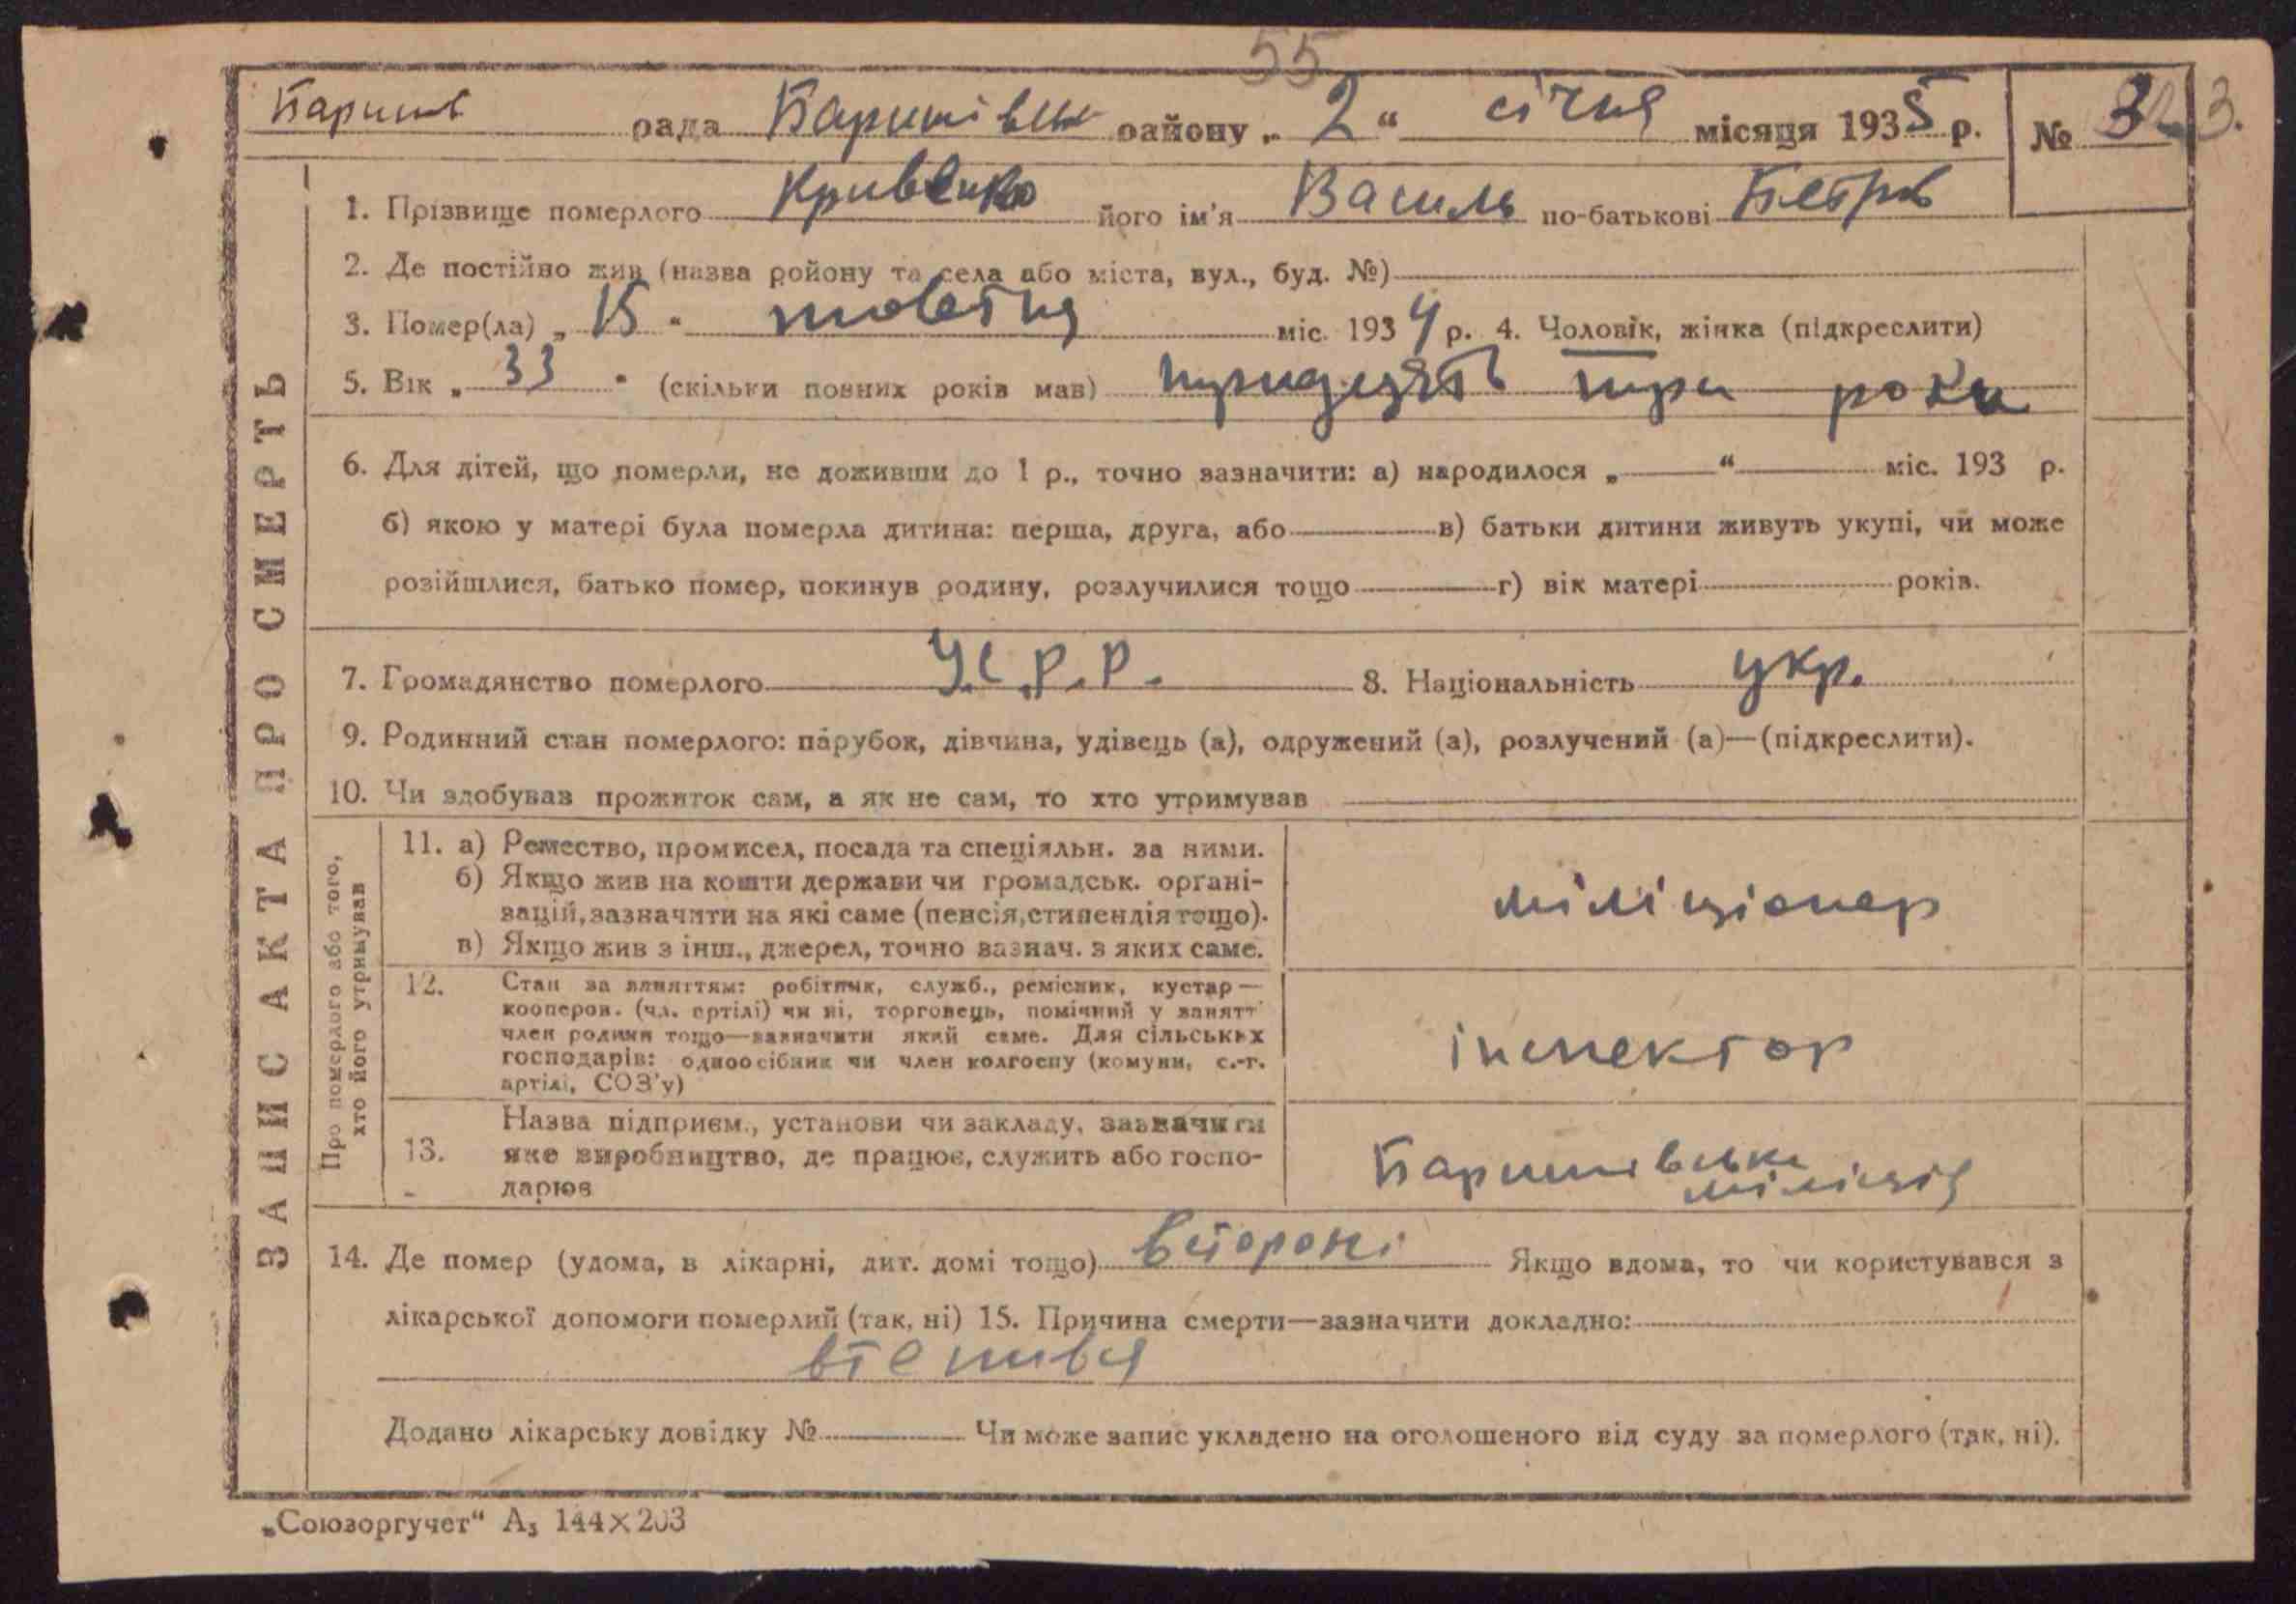 55
Баришів рада Баришівськ району „ 2 “ січня місяця 1935 р. № 3 3.
1. Прізвище померлого Кривенко його ім'я Василь по-батькові Петров
2. Де постійно жив (назва ройону та села або міста, вул., буд. №)
3. Помер(ла) „ 15 “ жовтня міс. 1934 р. 4. Чоловік, жінка (підкреслити)
5. Вік „ 33 “ (скільки повних років мав) тридцять три роки
6. Для дітей, що померли, не доживши до 1 р., точно зазначити: а) народилося „ “ міс. 193 р.
б) якою у матері була померла дитина: перша, друга, або в) батьки дитини живуть укупі, чи може
розійшлися, батько помер, покинув родину, розлучилися тощо г) вік матері років.
7. Громадянство померлого У.С.Р.Р. 8. Національність укр.
9. Родинний стан померлого: парубок, дівчина, удівець (а), одружений (а), розлучений (а)—(підкреслити).
10. Чи здобував прожиток сам, а як не сам, то хто утримував
ЗАПИС АКТА ПРО СМЕРТЬ
Про померлого або того,
хто його утримував
11. а) Ремество, промисел, посада та спеціяльн. за ними.
б) Якщо жив на кошти держави чи громадськ. органі-
зацій, зазначити на які саме (пенсія, стипендія тощо).
в) Якщо жив з інш., джерел, точно вазнач. з яких саме.
міліціонер
12. Стан за заняттям: робітник, служб., ремісник, кустар—
кооперов. (чл. артілі) чи ні, торговець, помічний у занятт
член родини тощо—зазначити який саме. Для сільських
господарів: одноосібник чи член колгоспу (комуни, с.-г.
артілі, СОЗ'у)
інспектор
13. Назва підприєм., установи чи закладу, зазначити
яке виробництво, де працює, служить або госпо-
дарює
Баришевська
міліція
14. Де помер (удома, в лікарні, дит. домі тощо) Якщо вдома, то чи користувався з
лікарської допомоги померлий (так, ні) 15. Причина смерти—зазначити докладно:
Додано лікарську довідку № Чи може запис укладено на оголошеного від суду за померлого (так, ні).
„Союзоргучет“ А₅ 144×203